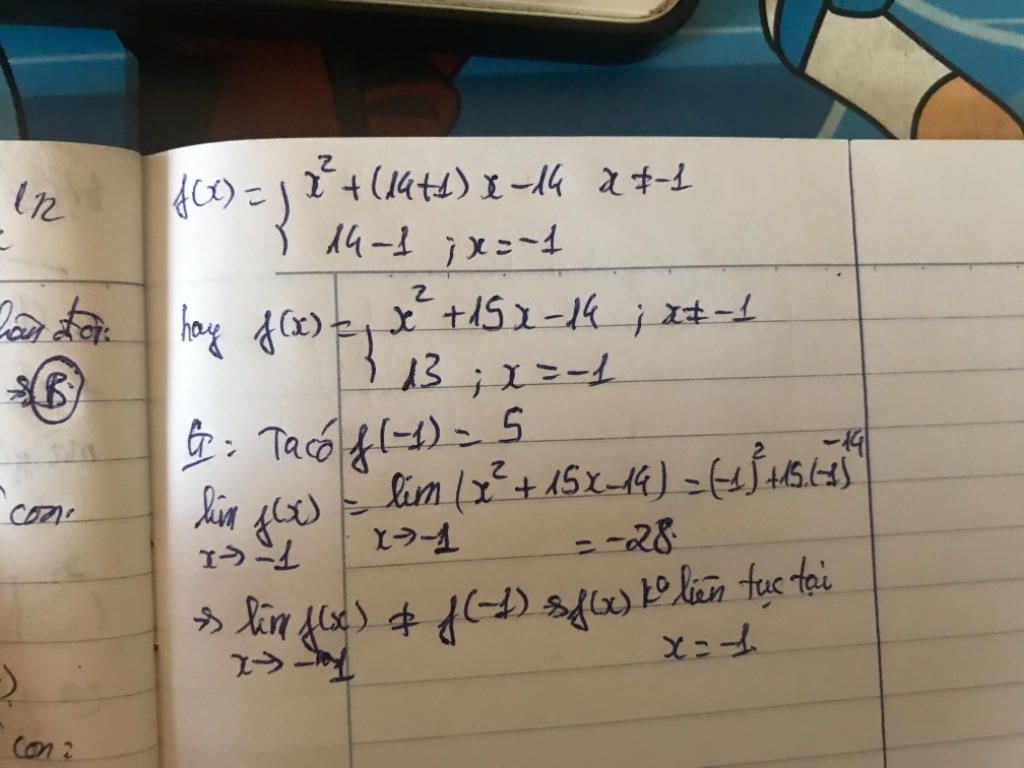 ln
hần đời:
⇒ B.
con.
con:
f(x) = { x² + (14+1) x - 14 x ≠ -1
14 - 1 ; x = -1
hay f(x) = { x² + 15x - 14 ; x ≠ -1
13 ; x = -1
G: Ta có f(-1) = 5
lim f(x) = lim (x² + 15x - 14) = (-1)² + 15.(-1) - 14
x → -1 x → -1 = -28.
⇒ lim f(x) ≠ f(-1) ⇒ f(x) ko liên tục tại
x → -1 x = -1.